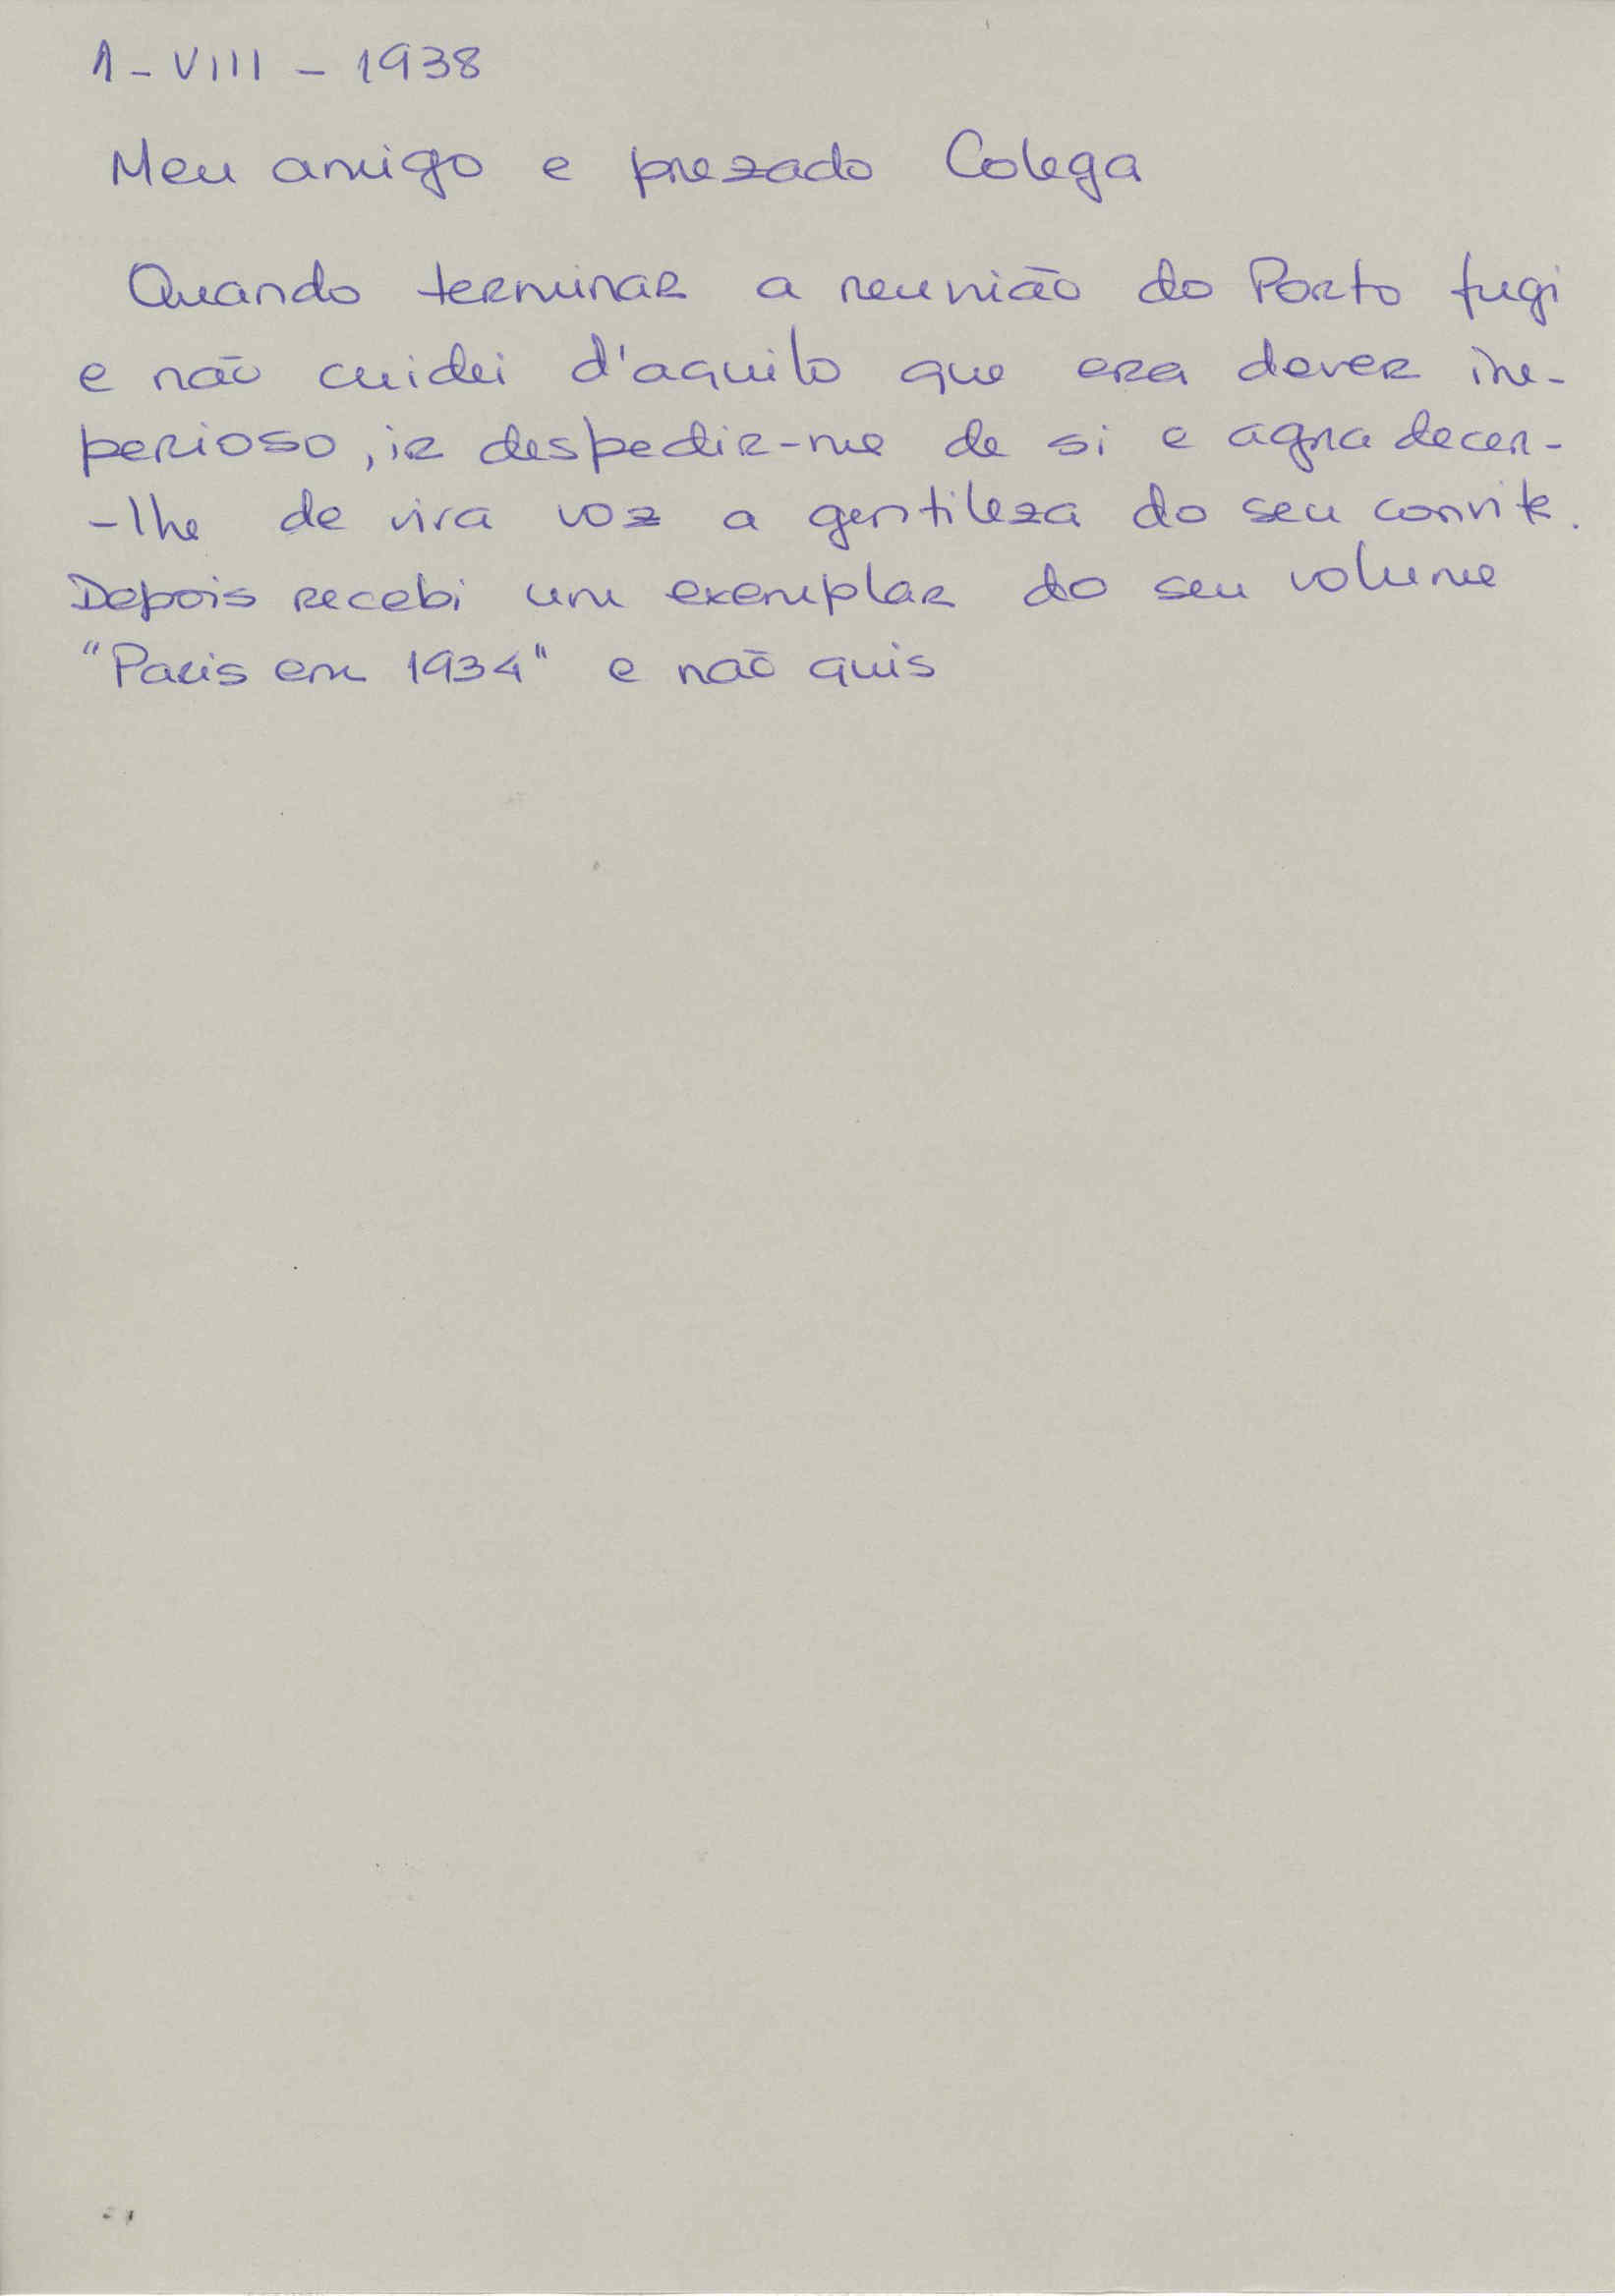 1-VIII-1938
Meu amigo e prezado Colega
Quando terminar a reunião do Porto fugi
e não cuidei d'aquilo que era dever im-
perioso, ir despedir-me de si e agradecer-
-lhe de viva voz a gentileza do seu convite.
Depois recebi um exemplar do seu volume
"Paris em 1934" e não quis